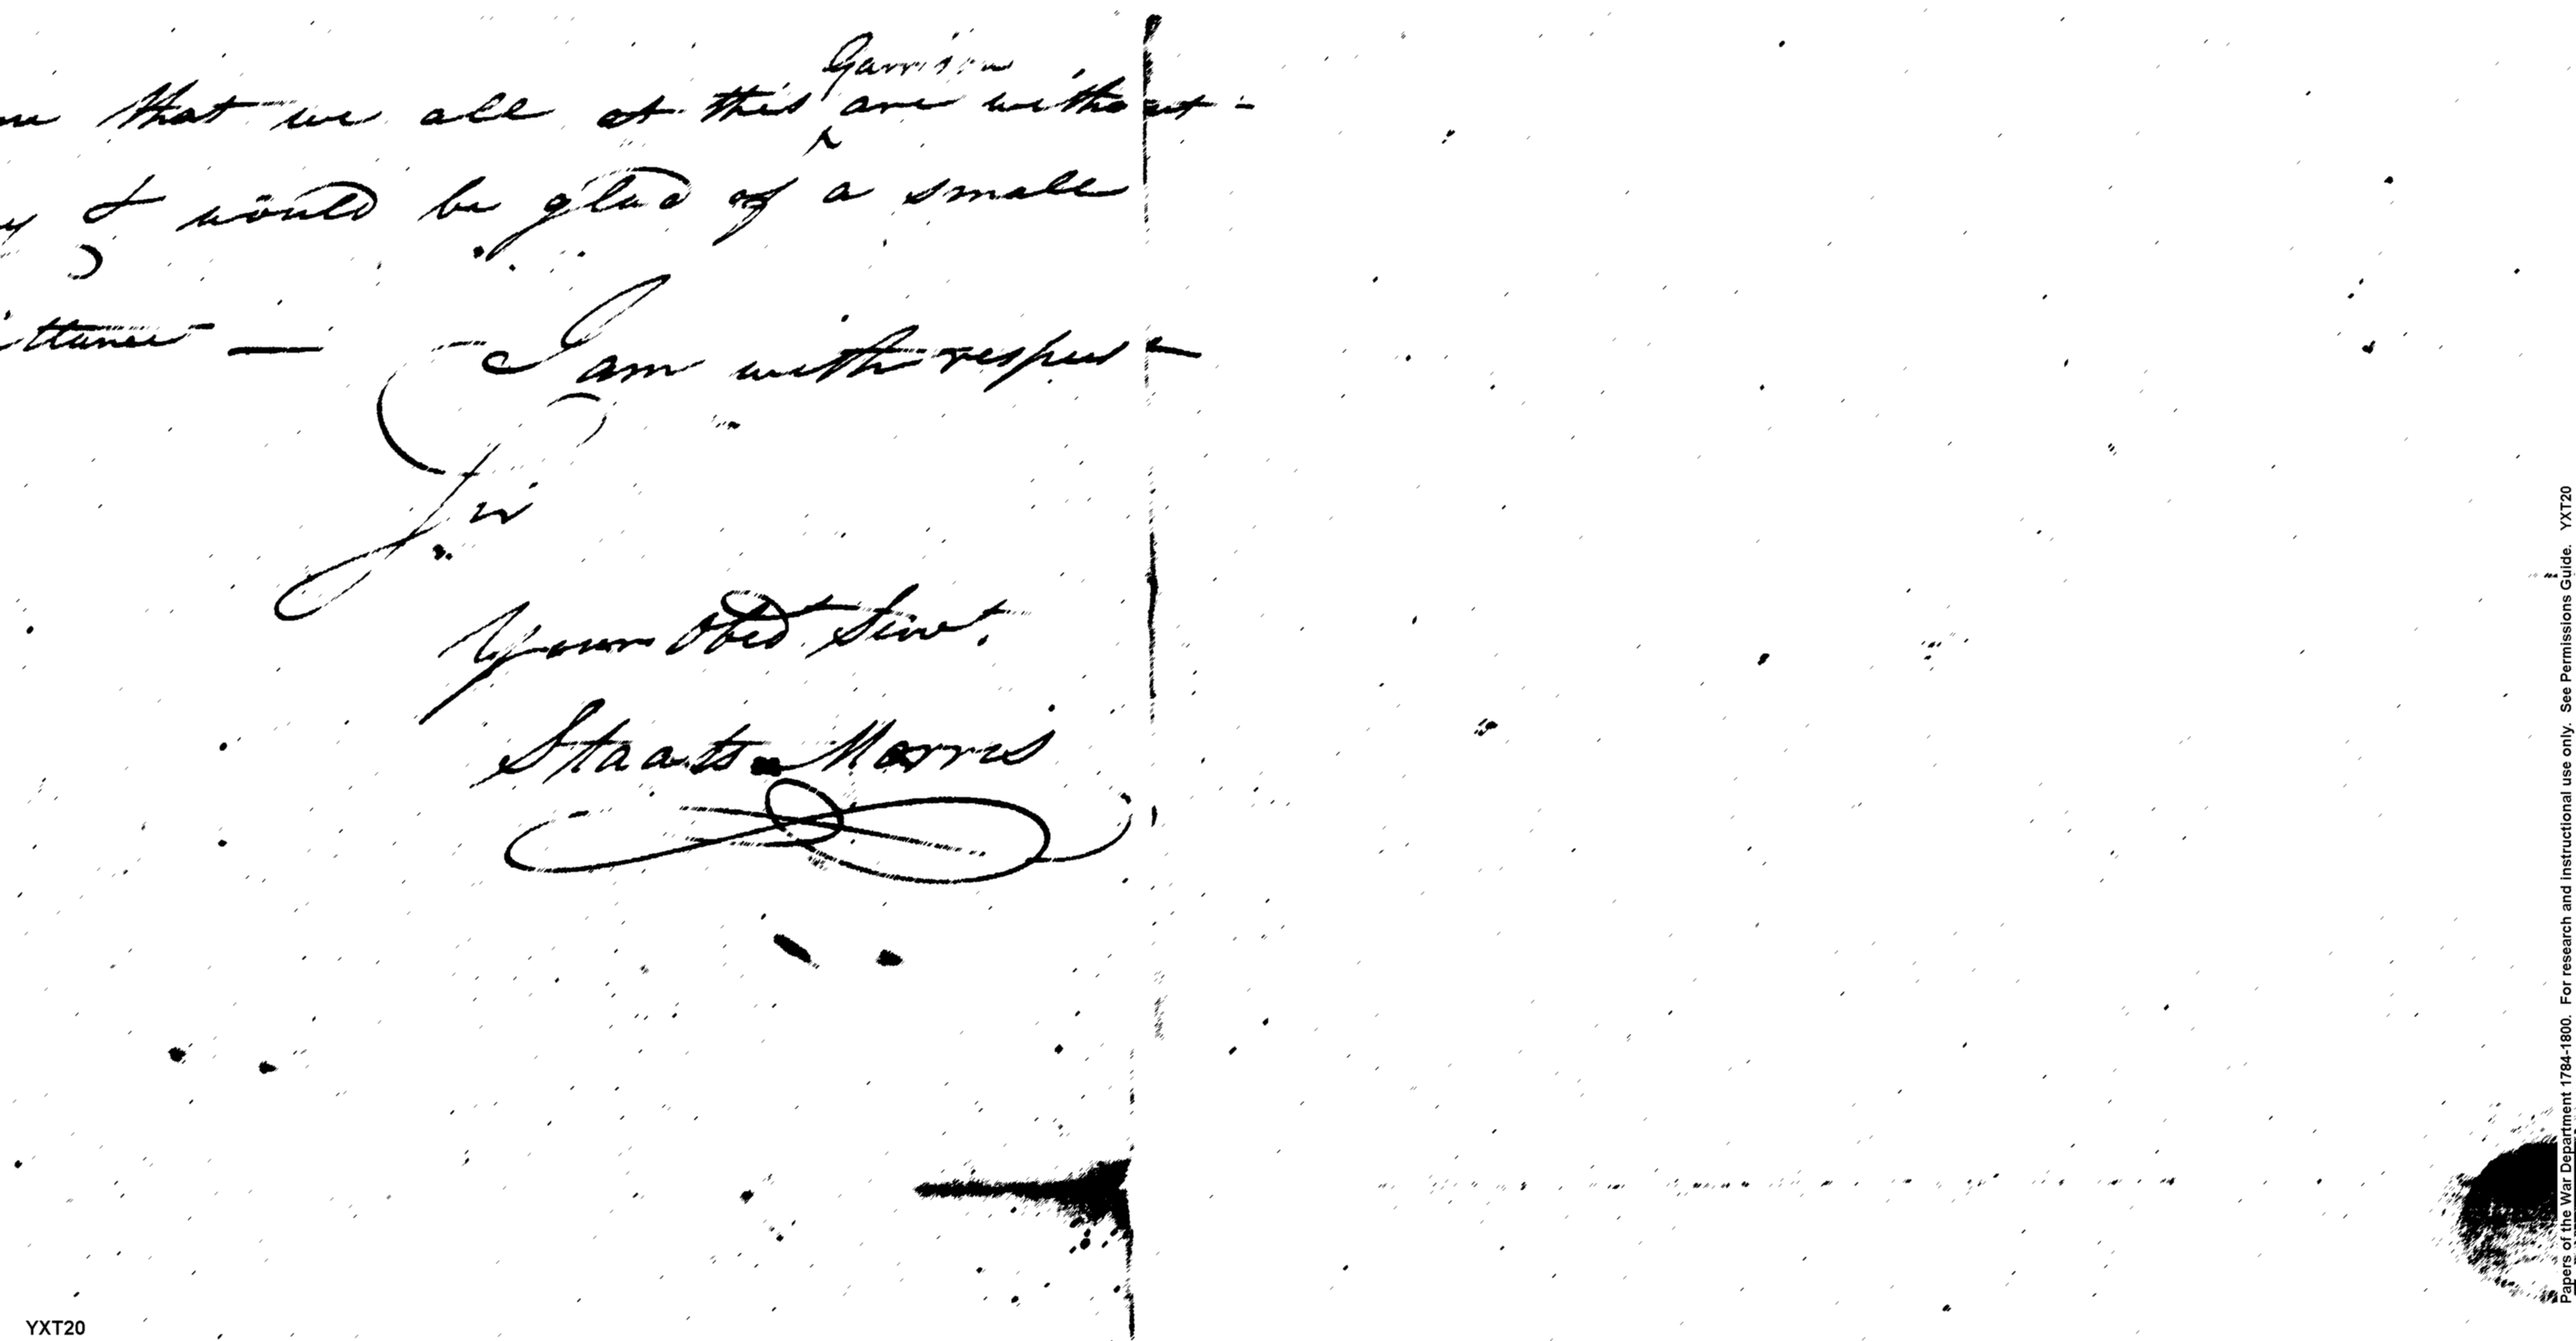 that we all at this Garrison are without -
I would be glad of a small
ttance — I am with respect
Sir
Your Obed.t Servt.
Staats Morris
YXT20
Papers of the War Department 1784-1800. For research and instructional use only. See Permissions Guide. YXT20